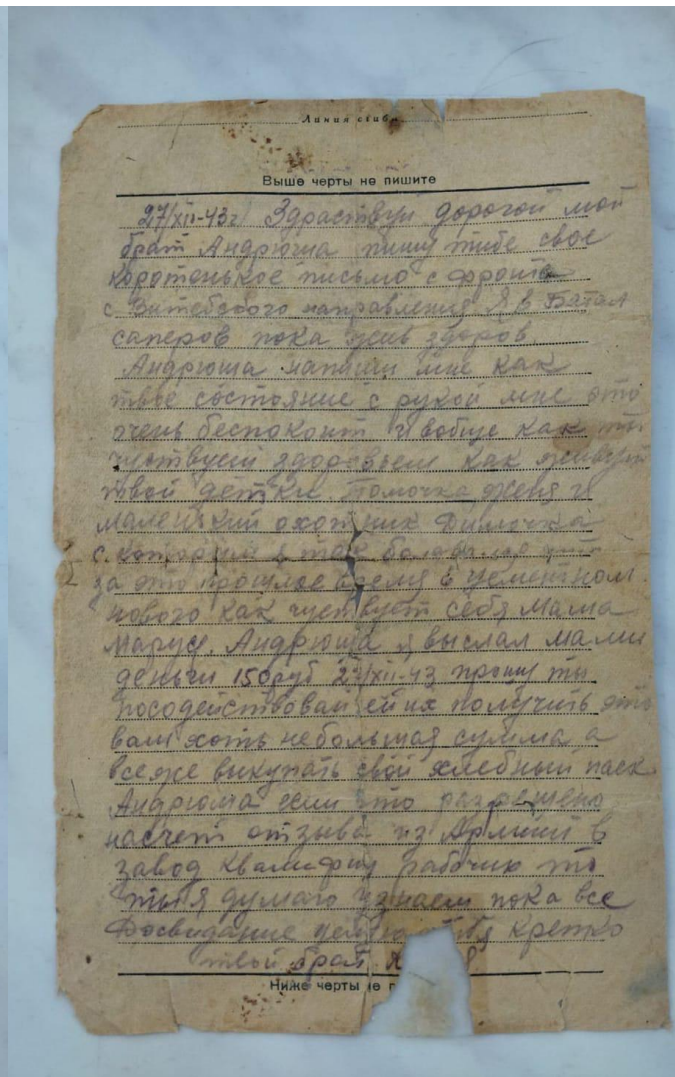 Линия сгиба
Выше черты не пишите
27/XII-43г Здраствуй дорогой мой
брат Андрюша пишу тибе свое
коротенькое письмо с фронта
с Витебского направления Я в Батал
саперов пока жив здоров
Андрюша напиши мне как
твое состояние с рукой мне это
очень беспокоит и вобще как ты
чуствуеш здоровьем как живут
твои детки Томочка Женя и
маленький охотник Димочка
с которым я так
за это прошлое время в цементном
нового как чуствует себя мама
Маруся. Андрюша я выслал мами
деньги 150 руб 27/XII-43 прошу ты
посодействовай ей их получить это
вам хоть небольшая сумма а
все же выкупать свой хлебный паек
Андрюша если что разрешено
насчет отзыва из Армии в
завод квалифиц рабочих то
ты я думаю узнаеш пока все
Досвидание крепко
твой брат
Ниже черты не п